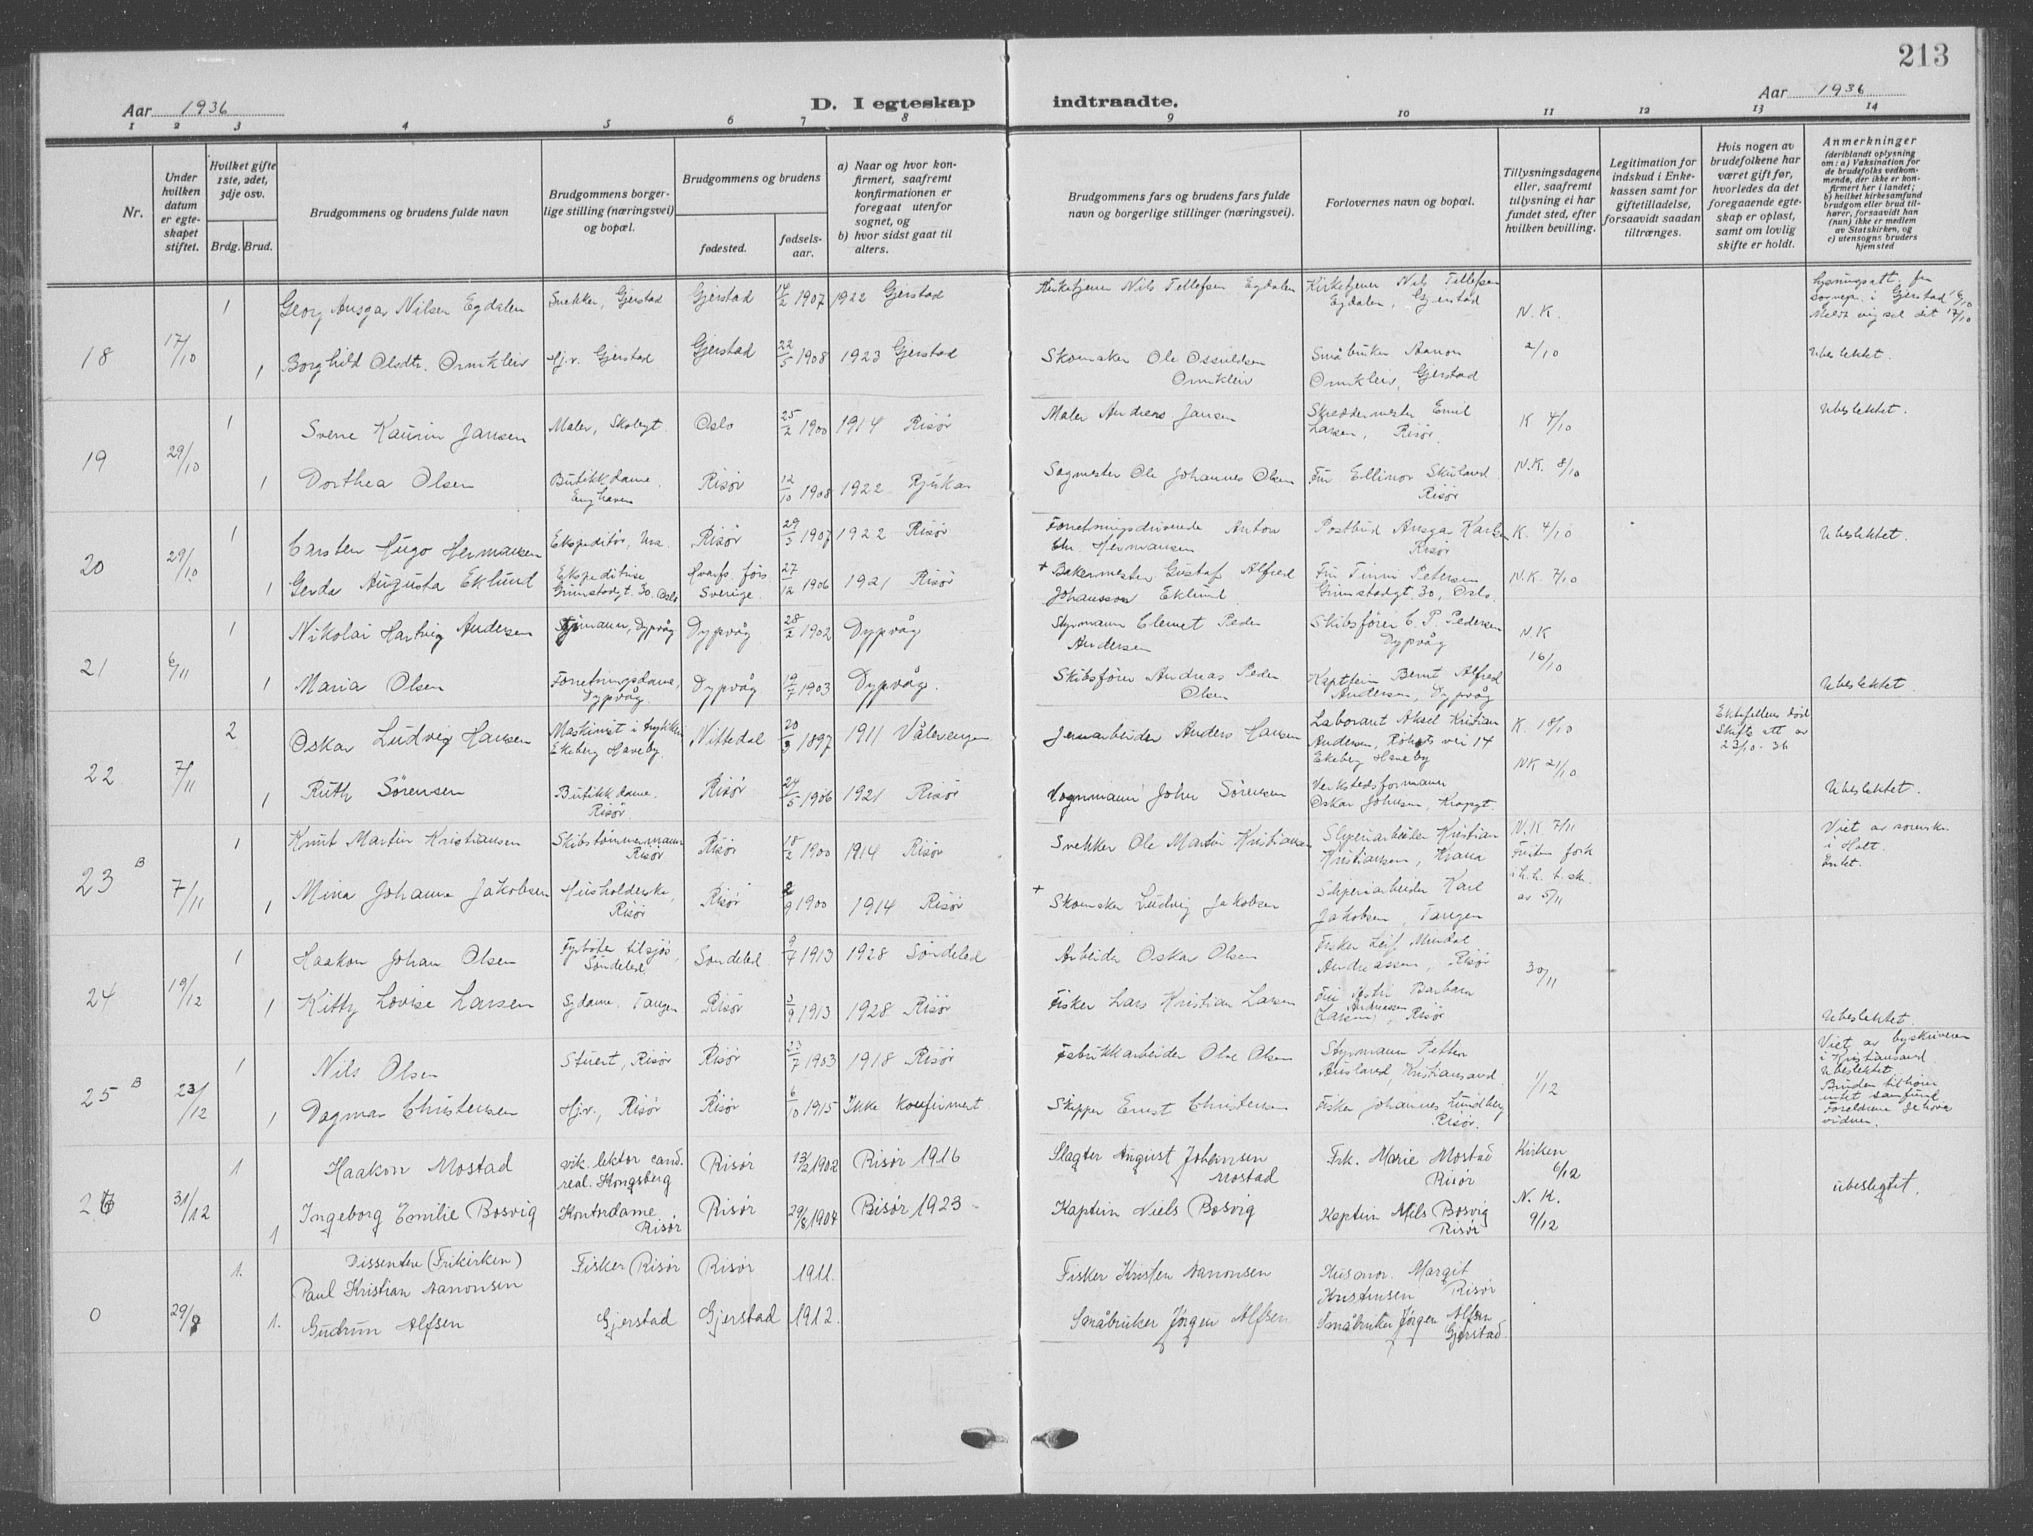 213
Aar 1936
D. I egteskap indtraadte.
Aar 1936
1 2 3 4 5 6 7 8 9 10 11 12 13 14
Nr.
Under hvilken datum er egteskapet stiftet.
Hvilket gifte 1ste, 2det, 3dje osv.
Brdg. Brud.
Brudgommens og brudens fulde navn
Brudgommens borgerlige stilling (næringsvei) og bopæl.
Brudgommens og brudens
fødested.
fødselsaar.
a) Naar og hvor konfirmert, saafremt konfirmationen er foregaat utenfor sognet, og
b) hvor sidst gaat til alters.
Brudgommens fars og brudens fars fulde navn og borgerlige stillinger (næringsvei).
Forlovernes navn og bopæl.
Tillysningsdagene eller, saafremt tillysning ei har fundet sted, efter hvilken bevilling.
Legitimation for indskud i Enkekassen samt for giftetilladelse, forsaavidt saadan tiltrænges.
Hvis nogen av brudefolkene har været gift før, hvorledes da det foregaaende egteskap er opløst, samt om lovlig skifte er holdt.
Anmerkninger
(deriblandt oplysning om: a) Vaksination for de brudefolks vedkommende, der ikke er konfirmert her i landet; b) hvilket kirkesamfund brudgom eller brud tilhører, forsaavidt han (hun) ikke er medlem av Statskirken, og c) utensogns bruders hjemsted
1 Georg Ansgar Nilsen Egdalen Snekker, Gjerstad Gjerstad 14/2 1907 1922 Gjerstad Kirketjener Nils Tellefsen Egdalen Kirketjener Nils Tellefsen Egdalen, Gjerstad N.K. Lysningsatt. fra sognepr. i Gjerstad 16/10 Meldt vigsel dit 17/10
18 17/10 1 Borghild Olsdtr. Ormkleiv Hj.v. Gjerstad Gjerstad 22/5 1908 1923 Gjerstad Skomaker Ole Ossuldsen Ormkleiv Småbruker Aanon Ormkleiv, Gjerstad 2/10 Ubeslektet.
1 Sverre Kaurin Jansen Maler, Skolegt Oslo 25/2 1900 1914 Risør Maler Andreas Jansen Skreddermester Emil Larsen, Risør. K 4/10 Ubeslektet.
19 29/10 1 Dorthea Olsen Butikkdame. Enghaven Risør 12/10 1908 1922 Rjukan Sagmester Ole Johannes Olsen Fru Ellinor Skuland Risør N.K. 8/10
1 Carsten Hugo Hermansen Ekspeditør, Ura. Risør 29/3 1907 1922 Risør Forretningsdrivende Anton Chr. Hermansen Postbud Ansgar Karlsen Risør K. 4/10 Ubeslektet.
20 29/10 1 Gerda Augusta Eklund Ekspeditrise Grimstadgt. 30, Oslo Hvarfs förs. Sverige. 27/12 1906 1921 Risør + Bakermester Gustaf Alfred Johansson Eklund Fru Finm Petersen Grimstadgt. 30, Oslo. N.K. 7/10
1 Nikolai Hartvig Andersen Styrmann, Dypvåg Dypvåg 28/2 1902 Dypvåg Styrmann Clemet Peder Andersen Skibsfører C. P. Pedersen Dypvåg N.K
21 6/11 1 Maria Olsen Forretningsdame, Dypvåg. Dypvåg 19/7 1903 Dypvåg. Skibsfører Andreas Peder Olsen Kaptein Bernt Alfred Andersen, Dypvåg 16/10 Ubeslektet.
2 Oskar Ludvig Hansen Maskinist i trykkeri Ekeberg Haveby. Nittedal 20/3 1897 1911 Vålerengen Jernarbeider Anders Hansen Laborant Aksel Kristian Andersen, vei 14 Ekeberg Haveby K. 18/10 Ektefellens død Skifte att av 23/10-36
22 7/11 1 Ruth Sørensen Butikkdame. Risør. Risør 24/5 1906 1921 Risør Vognmann John Sørensen Verkstedsformann Oskar Johnsen, Kragsgt. NK 21/10 Ubeslektet.
1 Knut Martin Kristiansen Skibstømmermann Risør Risør 18/2 1900 1914 Risør Snekker Ole Martin Kristiansen Sliperiarbeider Kristian Kristiansen, Krana N.K 7/11 Fristen fork. i h. h. t. sk. av 5/11 Viet av sorenskr. i Holt. Enket.
23 B 7/11 1 Mina Johanne Jakobsen Husholderske, Risør Risør 2/9 1900 1914 Risør + Skomaker Ludvig Jakobsen Sliperiarbeider Karl Jakobsen, Tangen
1 Haakon Johan Olsen Fyrbøter tilsjøs, Søndeled Søndeled 9/7 1913 1928 Søndeled Arbeider Oskar Olsen Fisker Leif Mindal Andreassen, Risør 30/11
24 19/12 1 Kitty Lovise Larsen Sydame, Tangen Risør 3/9 1913 1928 Risør Fisker Lars Kristian Larsen Fru Astri Barbara Andreassen (Larsen), Risør Ubeslektet.
1 Nils Olsen Stuert, Risør Risør 23/7 1903 1918 Risør Fabrikkarbeider Olve Olsen Styrmann Petter Ausland, Kristiansand. 1/12 Viet av byskriveren i Kristiansand. Ubeslektet. Bruden tilhører intet samfund Foreldrene Jehovas vidner.
25 B 23/12 1 Dagmar Christensen Hjv., Risør Risør 6/10 1915 Ikke konfirmert Skipper Ernst Christensen Fisker Johannes Lundberg Risør.
1 Haakon Mostad vik. lektor cand. real. Kongsberg Risør 13/2 1902 Risør 1916 Slagter August Johansen Mostad Frk. Marie Mostad Risør Kirken 6/12 ubeslegtet.
26 31/12 1 Ingeborg Emilie Bosvig Kontordame Risør Risør 29/8 1904 Risør 1923 Kaptein Niels Bosvig Kaptein Nils Bosvig Risør N.K. 9/12
1. Dissentere (Frikirken) Paul Kristian Aanonsen Fisker Risør Risør 1911. Fisker Kristen Aanonsen Husmor. Margit Kristensen Risør
0 29/8 1. Gudrun Alfsen Gjerstad Gjerstad 1912. Småbruker Jørgen Alfsen Småbruker Jørgen Alfsen Gjerstad.